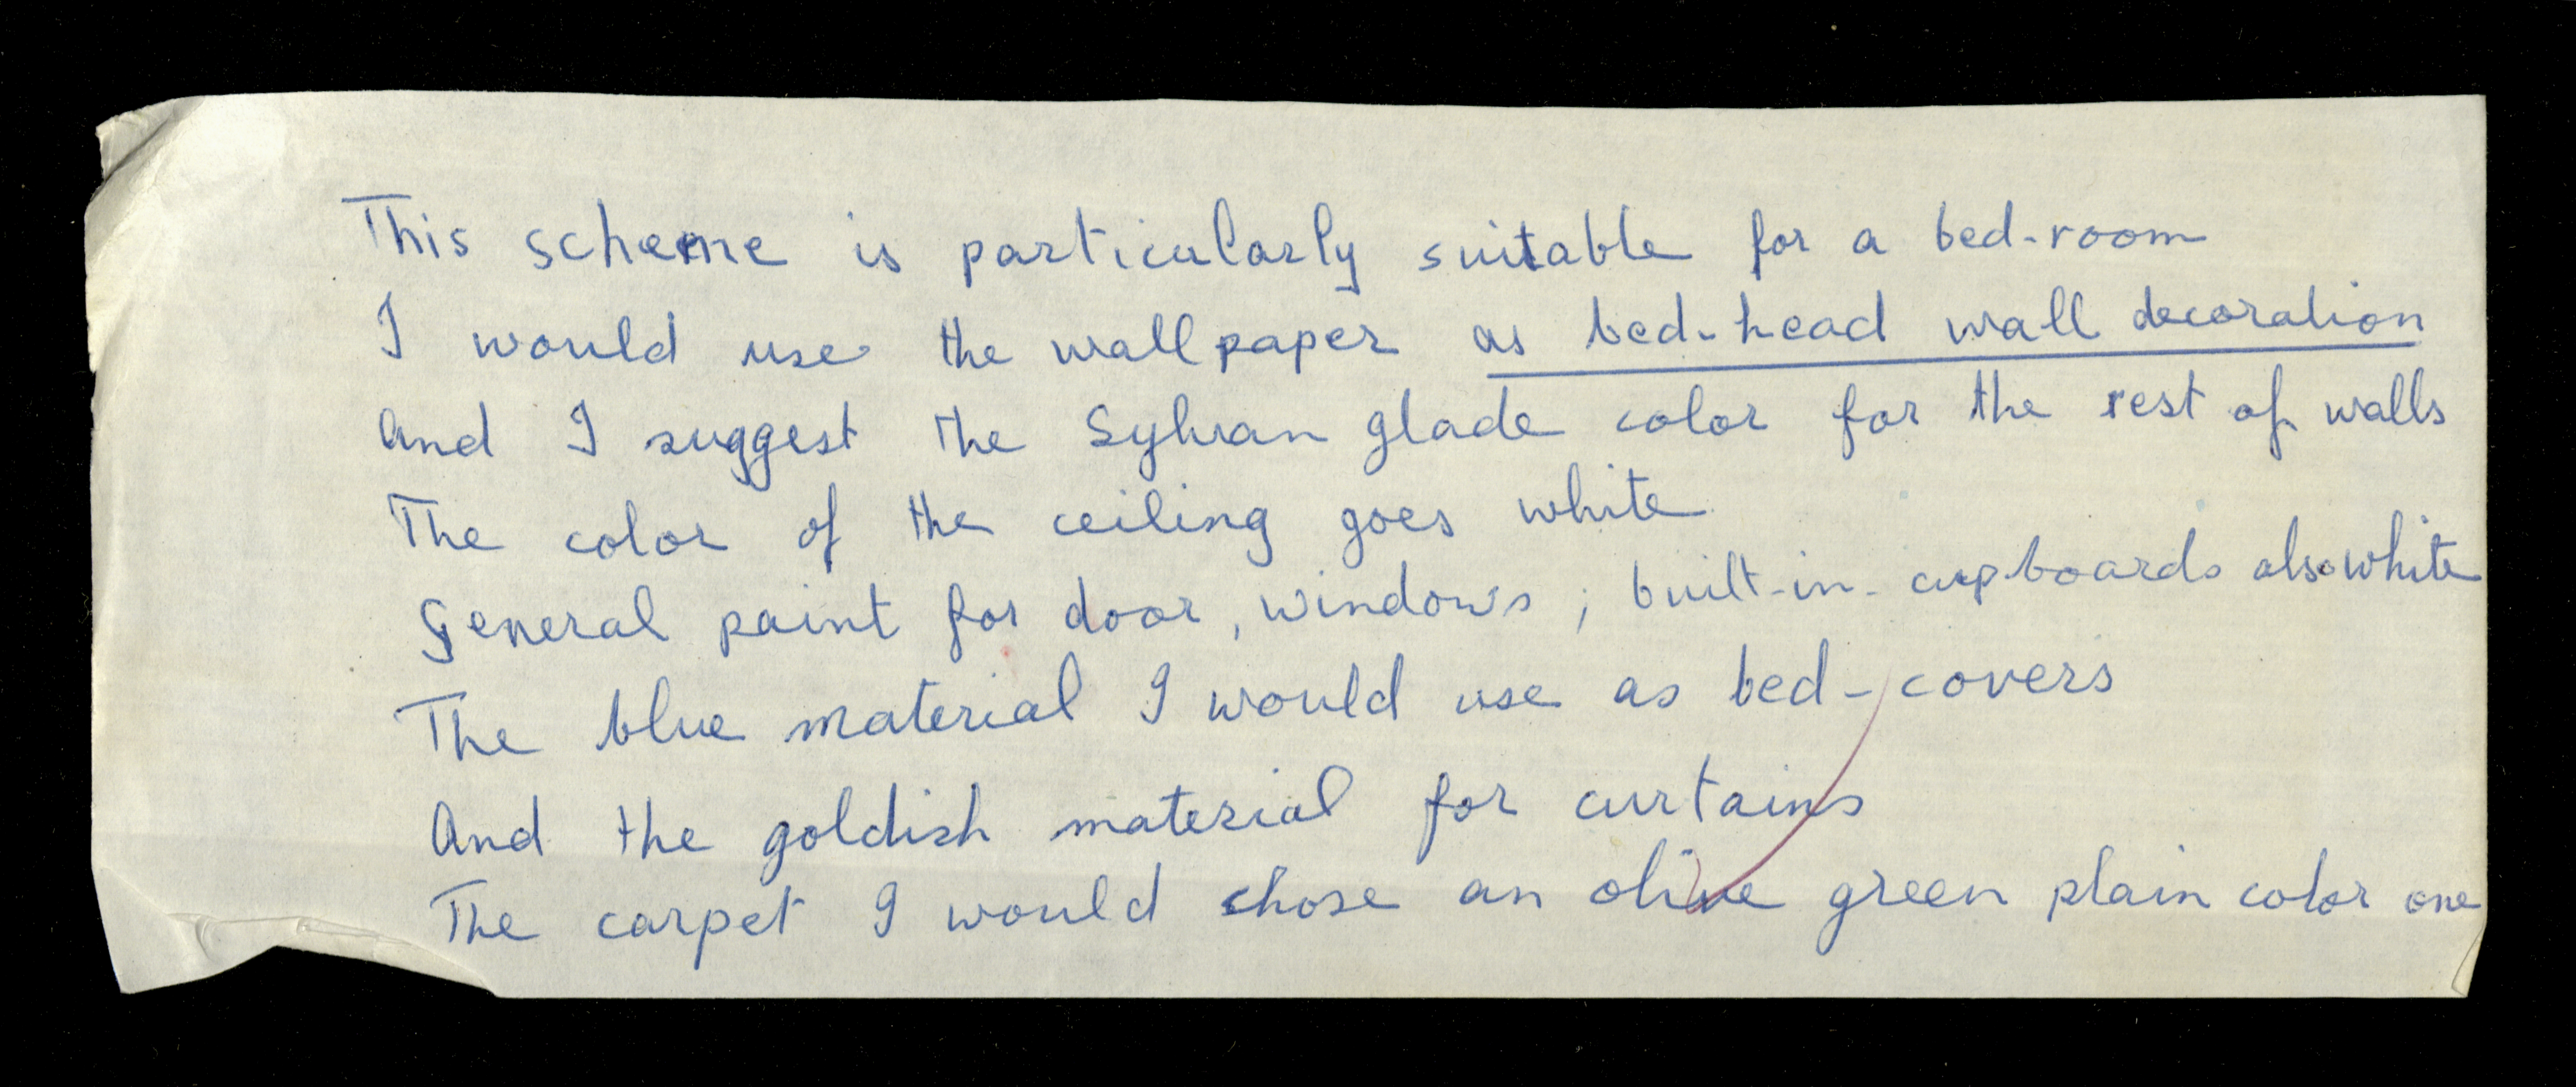 This scheme is particularly suitable for a bed-room
I would use the wallpaper as bed-head wall decoration
And I suggest the Sylvan glade color for the rest of walls
The color of the ceiling goes white
General paint for door, windows; built-in-cupboards also white
The blue material I would use as bed-covers
And the goldish material for curtains
The carpet I would chose an olive green plain color one